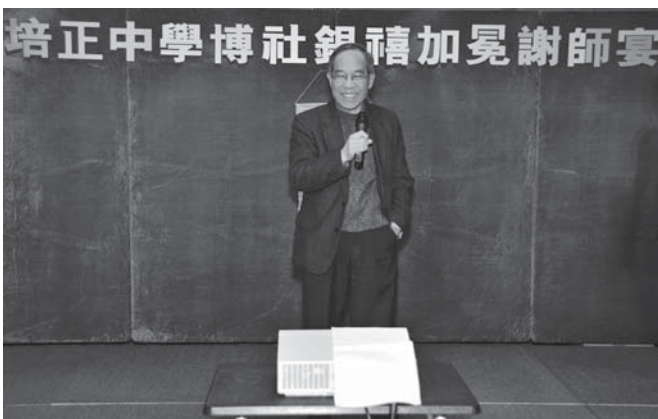 培正中學博社銀禧加冕謝師宴